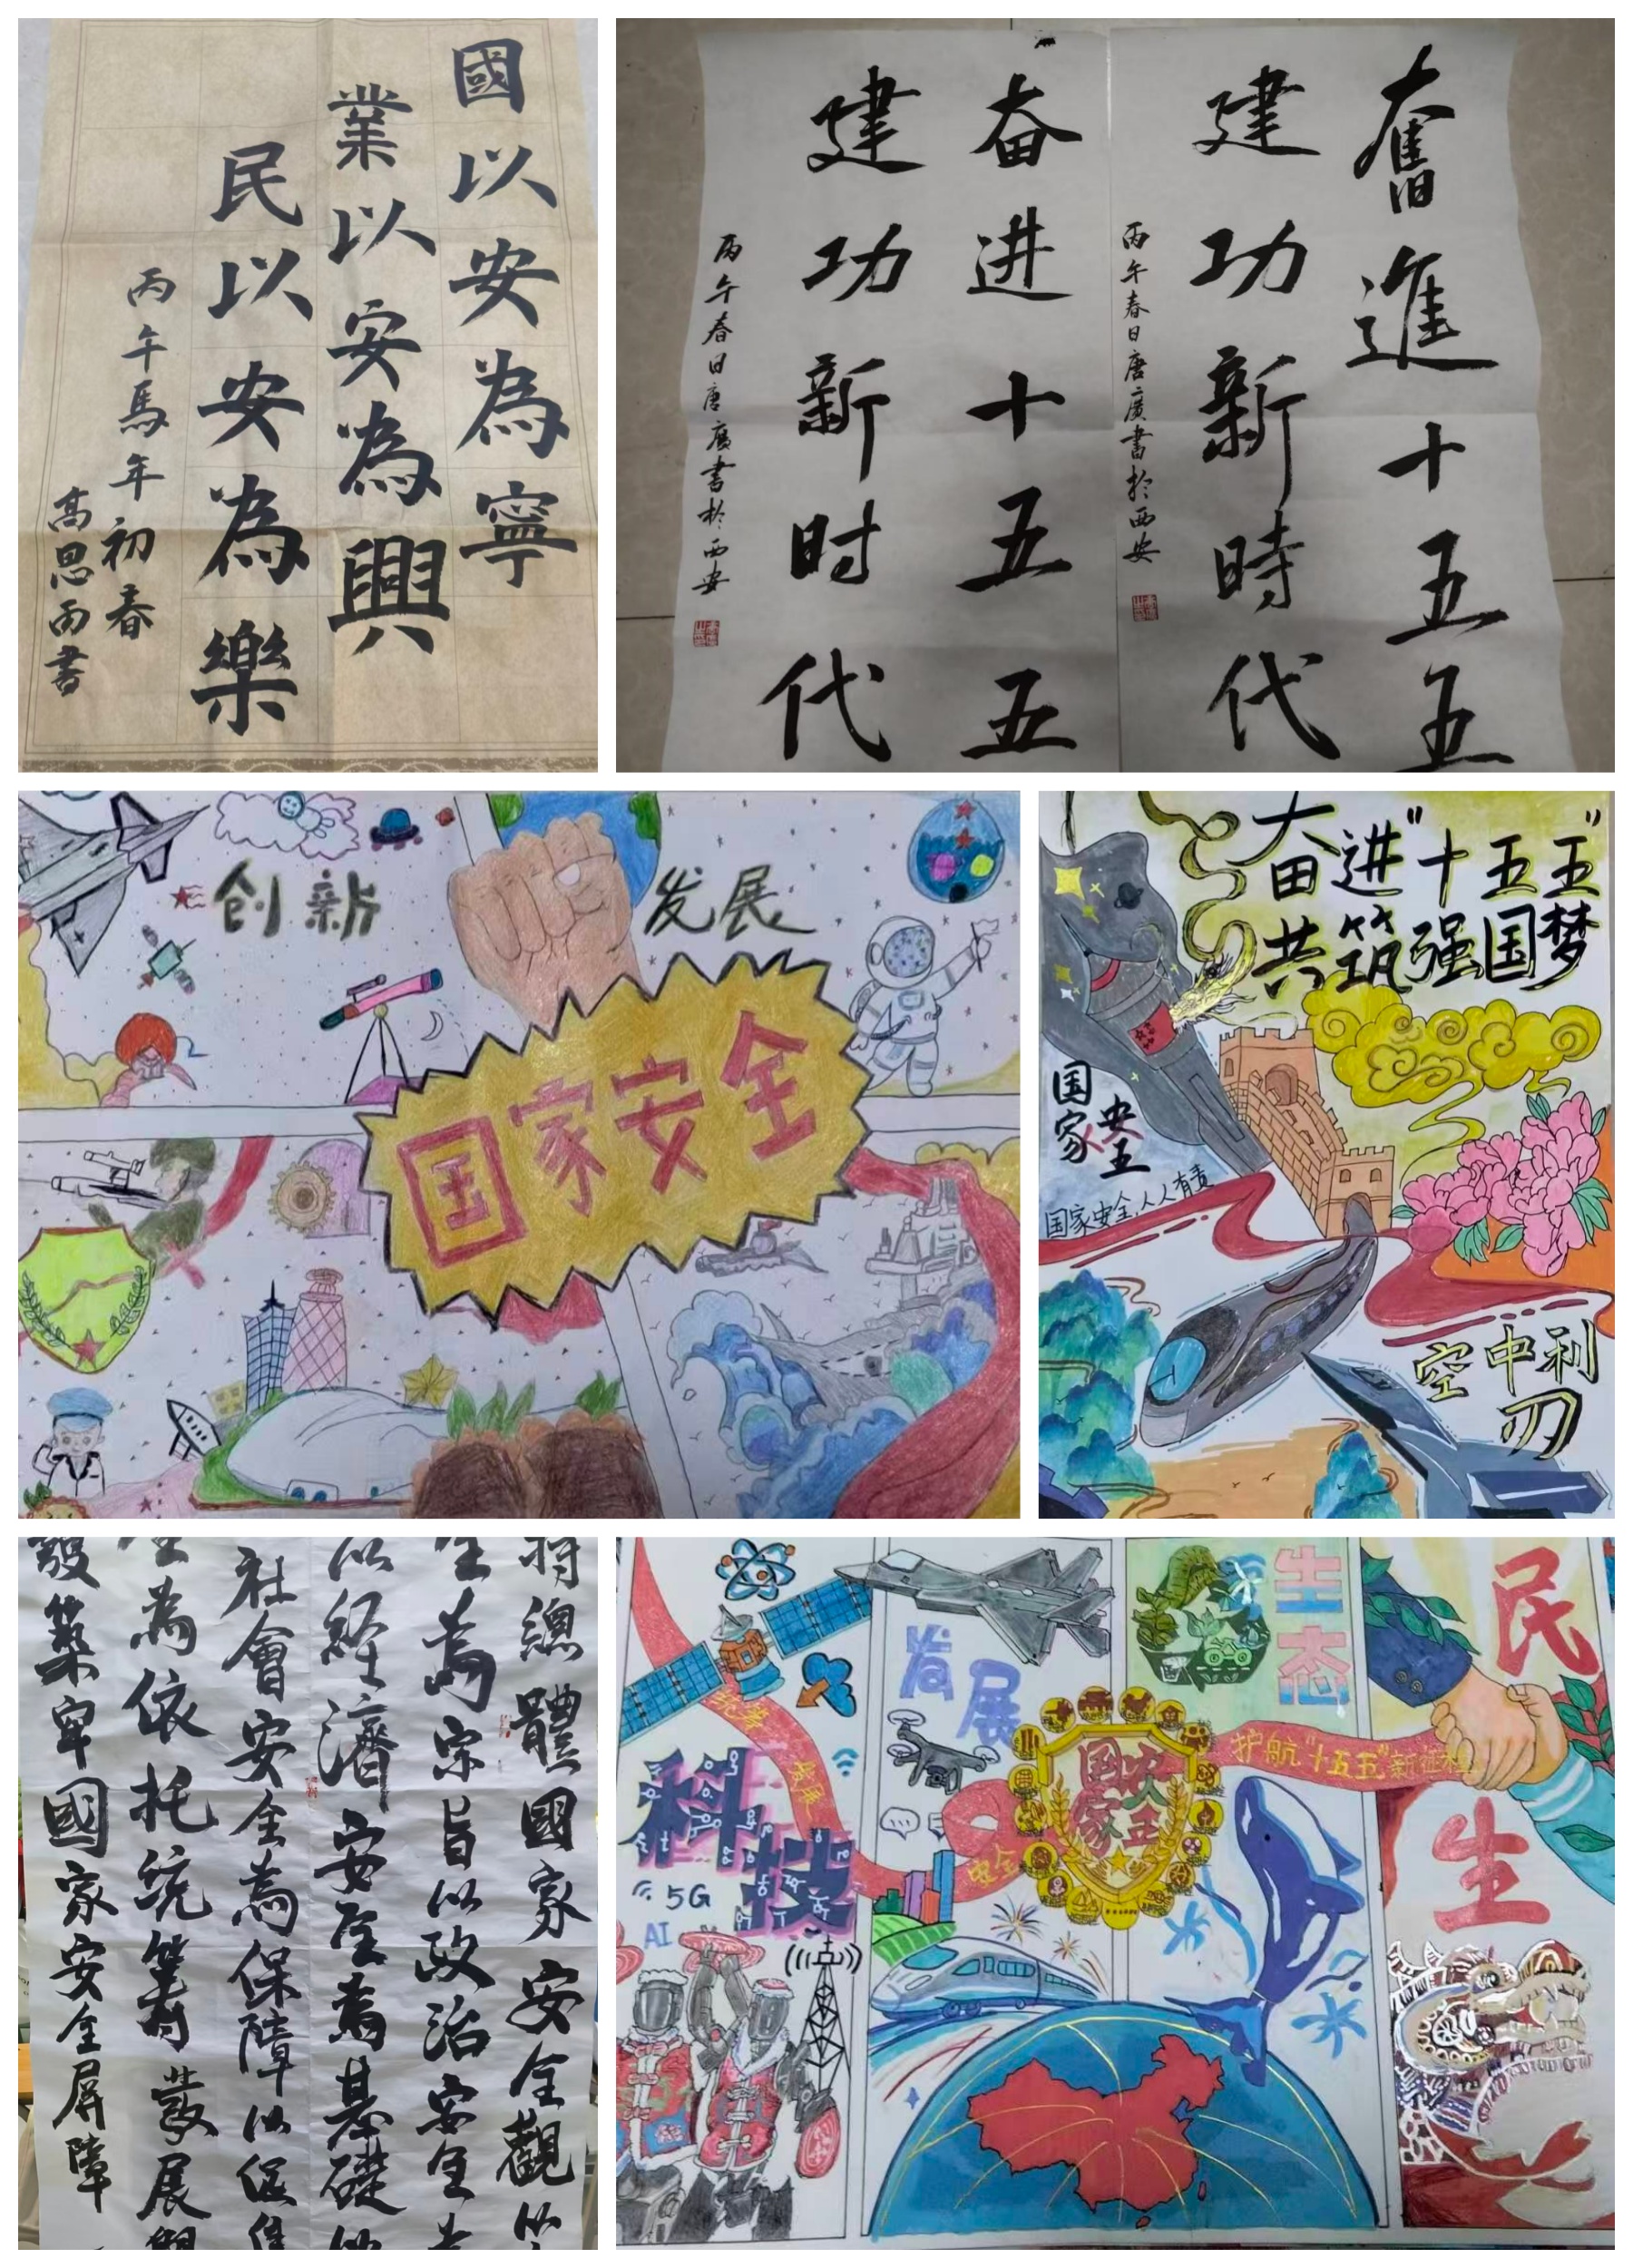 國以安為寧
業以安為興
民以安為樂
丙午馬年初春
高思雨書
奮進十五五
建功新時代
丙午春日唐廣書於西安
奋进十五五
建功新时代
丙午春日唐廣書於西安
创新
发展
国家安全
奋进"十五五"
共筑强国梦
国家安全
国家安全,人人有责
空中利刃
持總體國家安全觀以
為宗旨以政治安全為
以經濟安全為基礎以
社會安全為保障以促進
為依托統籌發展
設築牢國家安全屏障
统筹
发展
安全
护航"十五五"新征程
发展
生态
民生
国家安全
科技
5G
AI